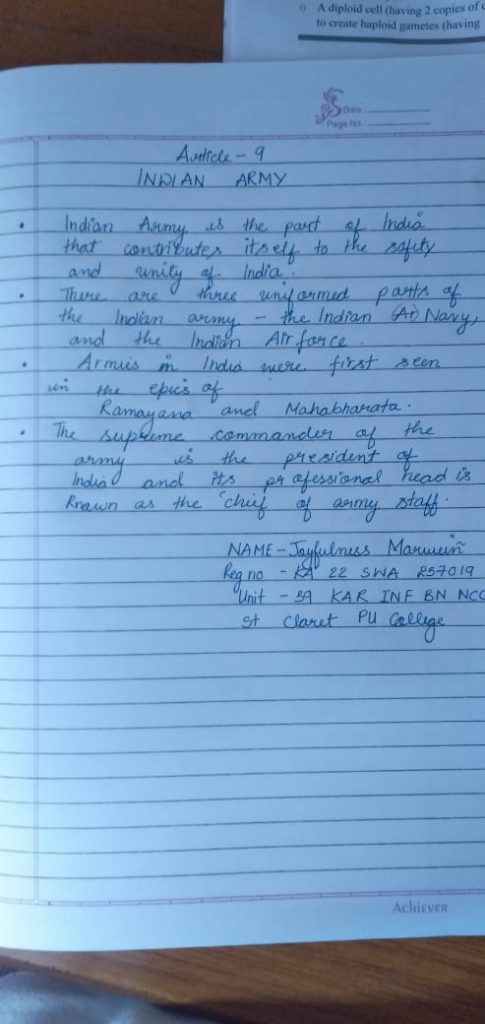 o A diploid cell (having 2 copies of
to create haploid gametes (having
Date:
Page No.:
Article - 9
INDIAN ARMY
• Indian Army is the part of India
that contributes itself to the safety
and unity of India.
• There are three uniformed parts of
the Indian army - the Indian Navy,
and the Indian Air force.
• Armies in India were first seen
in the epics of
Ramayana and Mahabharata.
• The supreme commander of the
army is the president of
India and its professional head is
known as the 'chief of army staff.
NAME - Joyfulness Marwein
Reg no - KA 22 SWA 257019
Unit - 39 KAR INF BN NCC
St Claret PU College
ACHIEVER